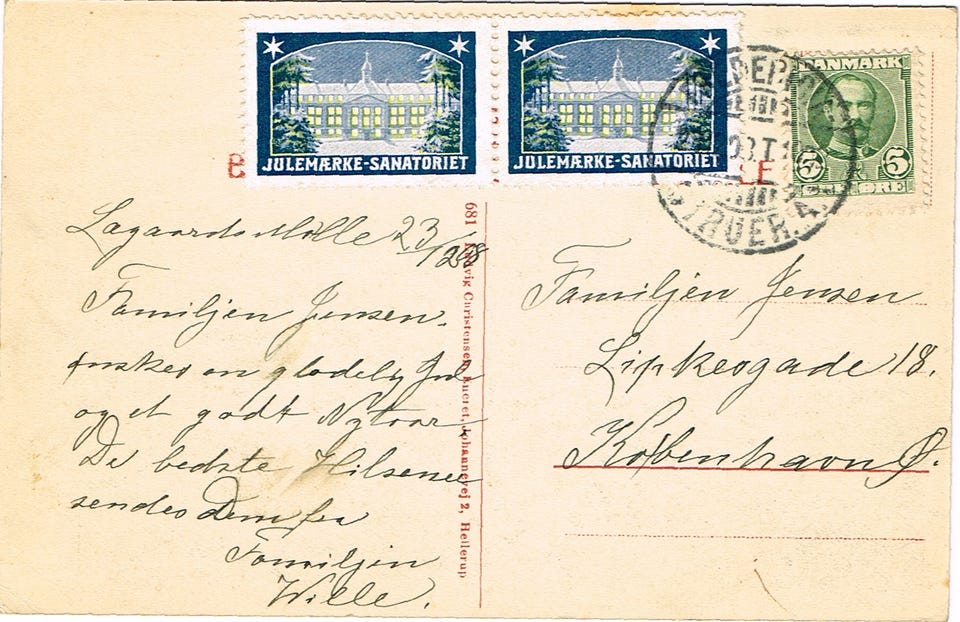 JULEMÆRKE-SANATORIET
JULEMÆRKE-SANATORIET
DANMARK
5 5
ØRE
STRUER.
Lagaards Mølle 23/12 08
Familjen Jensen.
ønskes en glædelig Jul
og et godt Nytaar
De bedste Hilsener
sendes Dem fra
Familjen
Wille.
681 Ludvig Christensen, Eneret, Johannevej 2, Hellerup
Familjen Jensen
Lipkesgade 18.
København Ø.